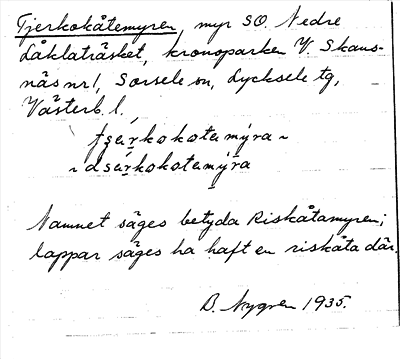 Tjerkokåtemyren, myr SO. Nedre
Låklaträsket, kronoparken V. Skaus-
näs nr 1, Sorsele sn, Lycksele tg,
Västerb. l.
Namnet säges betyda Riskåtamyren;
lappar säges ha haft en riskåta där.
B. Nygren 1935.